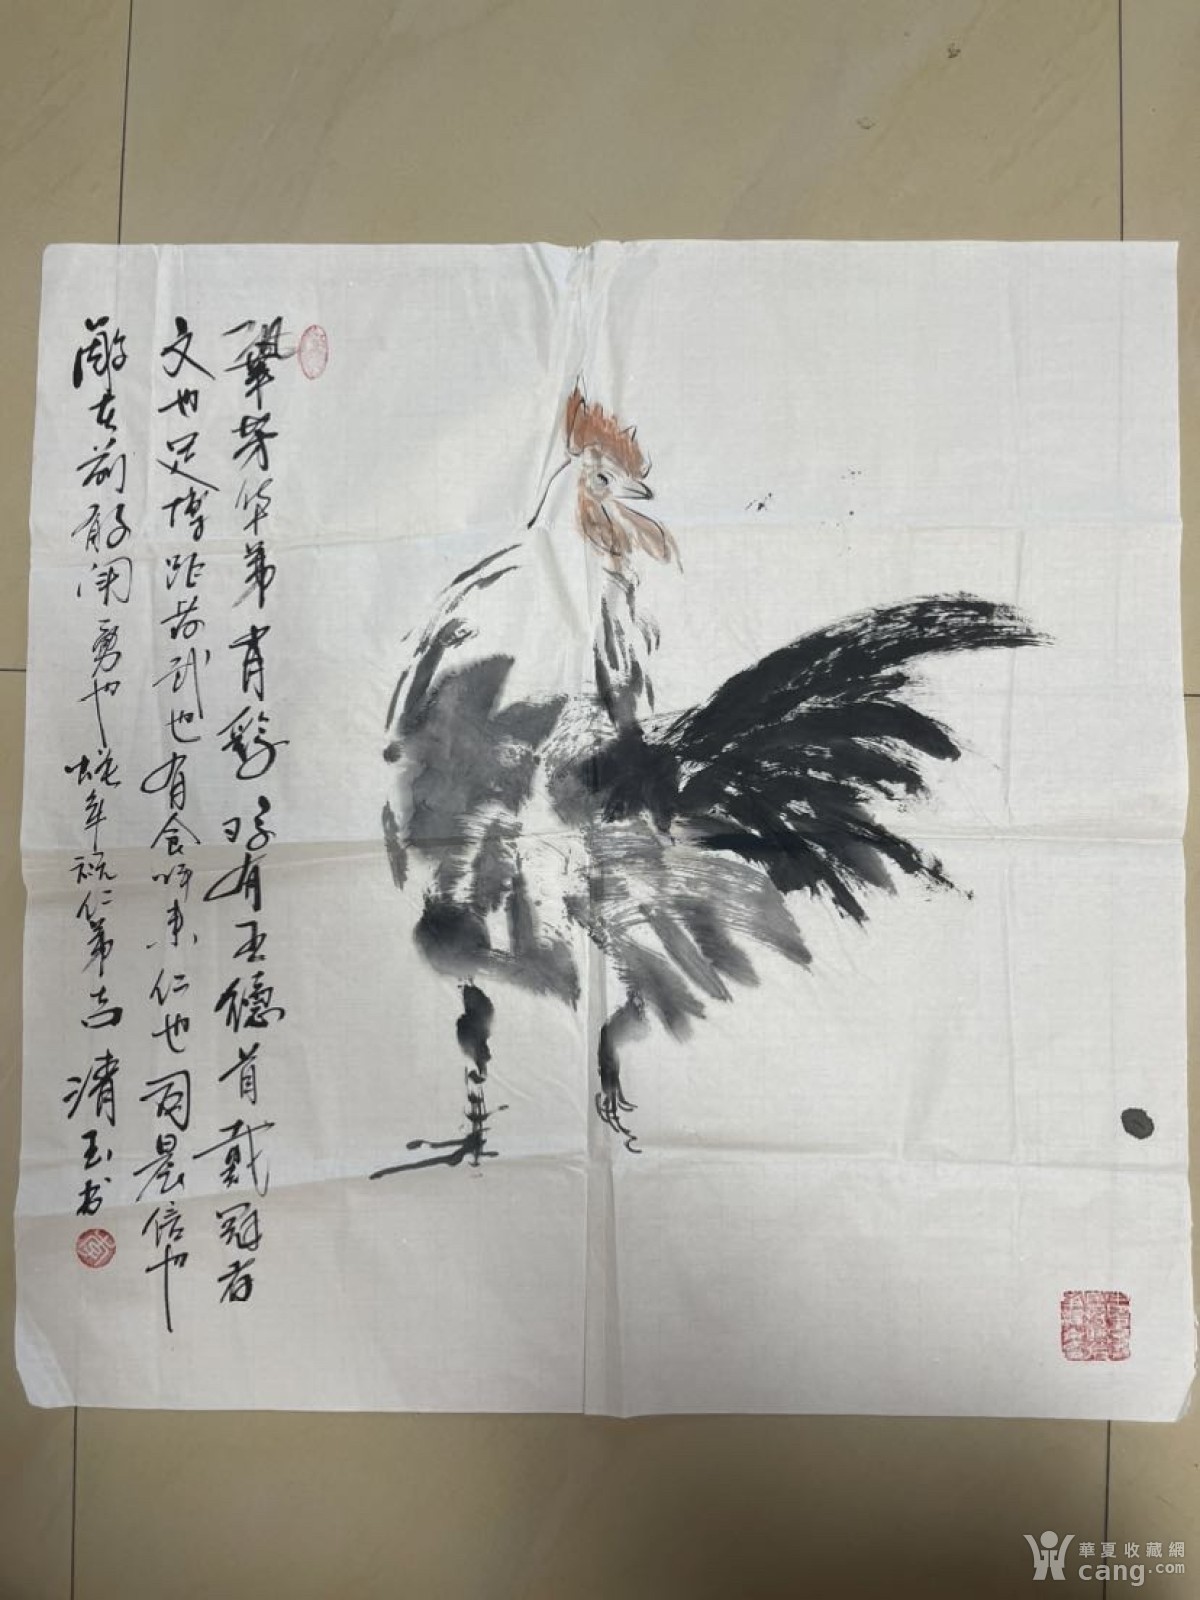 芳华弟肖鸡 鸡有五德首戴冠者
文也足博距者武也有食呼来仁也司晨信也
敵在前敢勇也 蛇年祝仁弟吉 清玉书
華夏收藏網
cang.com